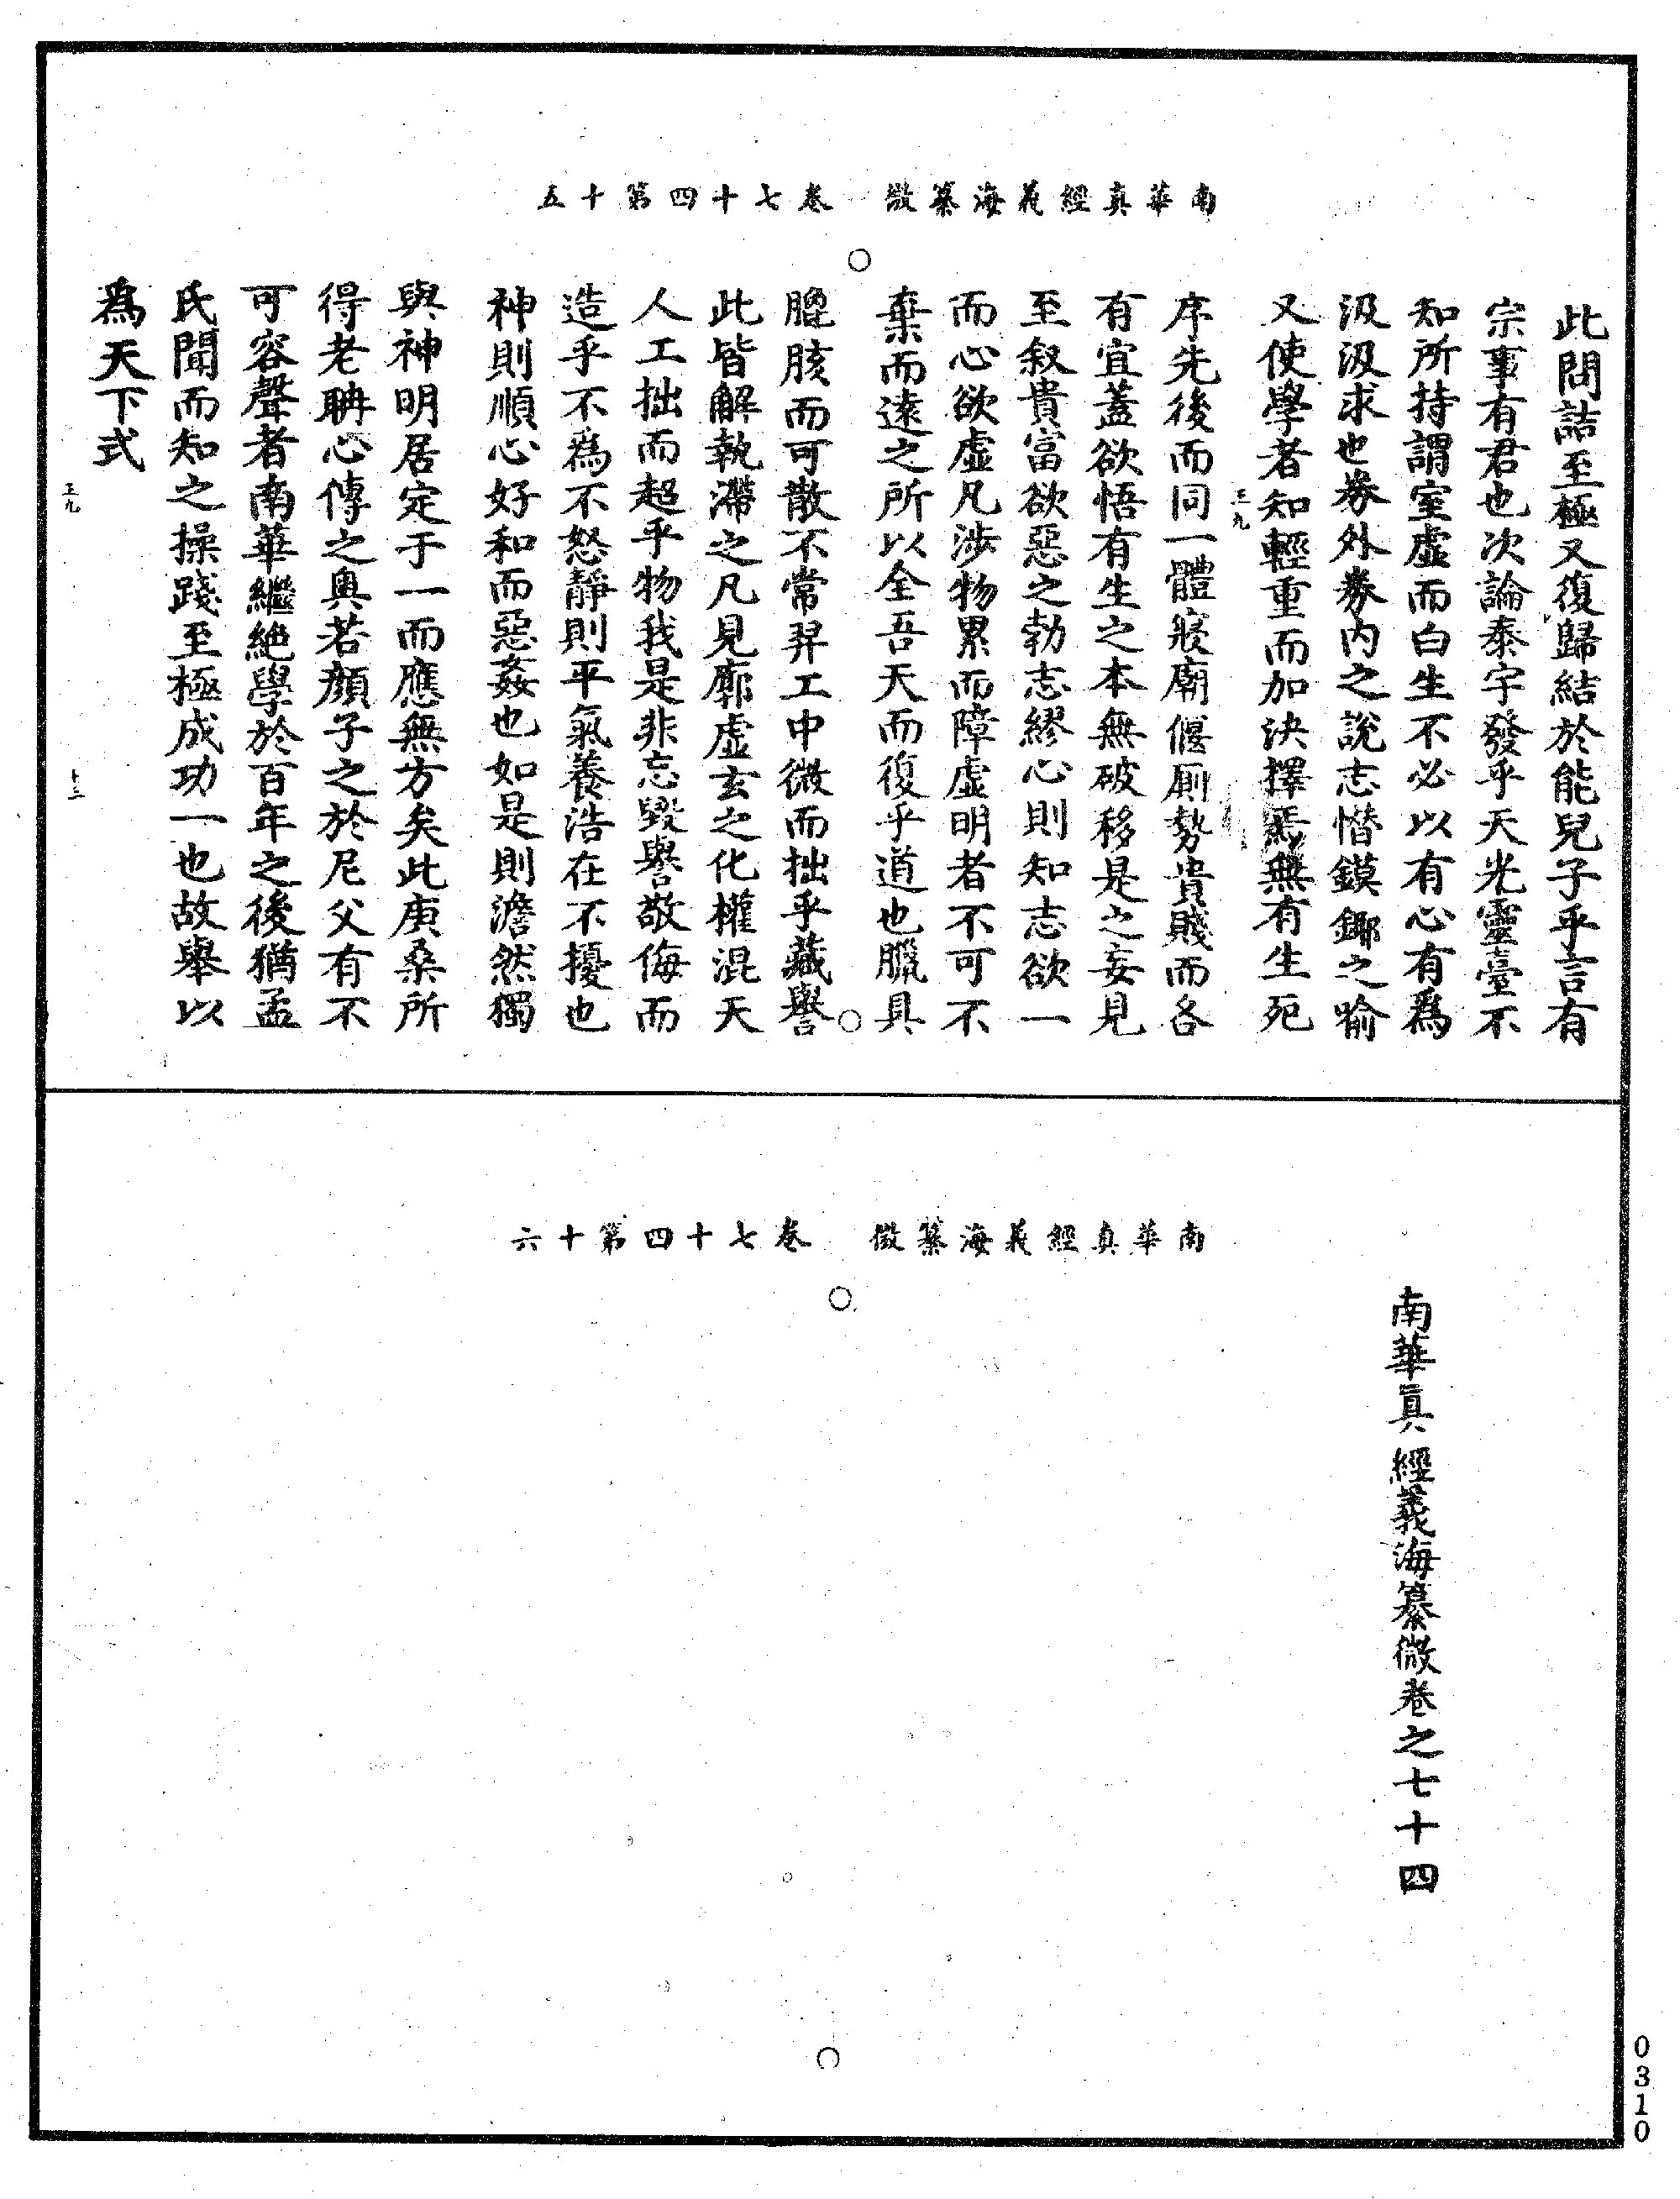 南華真經義海纂微　卷七十四第十五
此問詰至極又復歸結於能兒子乎言有
宗事有君也次論泰宇發乎天光靈臺不
知所持謂室虛而白生不必以有心有爲
汲汲求也券外券內之說志憯鏌鋣之喻
又使學者知輕重而加決擇焉無有生死
序先後而同一體寢廟偃廁勢貴賤而各
有宜蓋欲悟有生之本無破移是之妄見
至叙貴富欲惡之勃志繆心則知志欲一
而心欲虛凡涉物累而障虛明者不可不
棄而遠之所以全吾天而復乎道也臘具
膍胲而可散不常羿工中微而拙乎藏譽
此皆解執滯之凡見廓虛玄之化權混天
人工拙而超乎物我是非忘毀譽敬侮而
造乎不爲不怒靜則平氣養浩在不擾也
神則順心好和而惡姦也如是則澹然獨
與神明居定于一而應無方矣此庚桑所
得老聃心傳之奥若顏子之於尼父有不
可容聲者南華繼絕學於百年之後猶孟
氏聞而知之操踐至極成功一也故舉以
爲天下式
三九
三九
十三
南華真經義海纂微　卷七十四第十六
南華真經義海纂微卷之七十四
0310